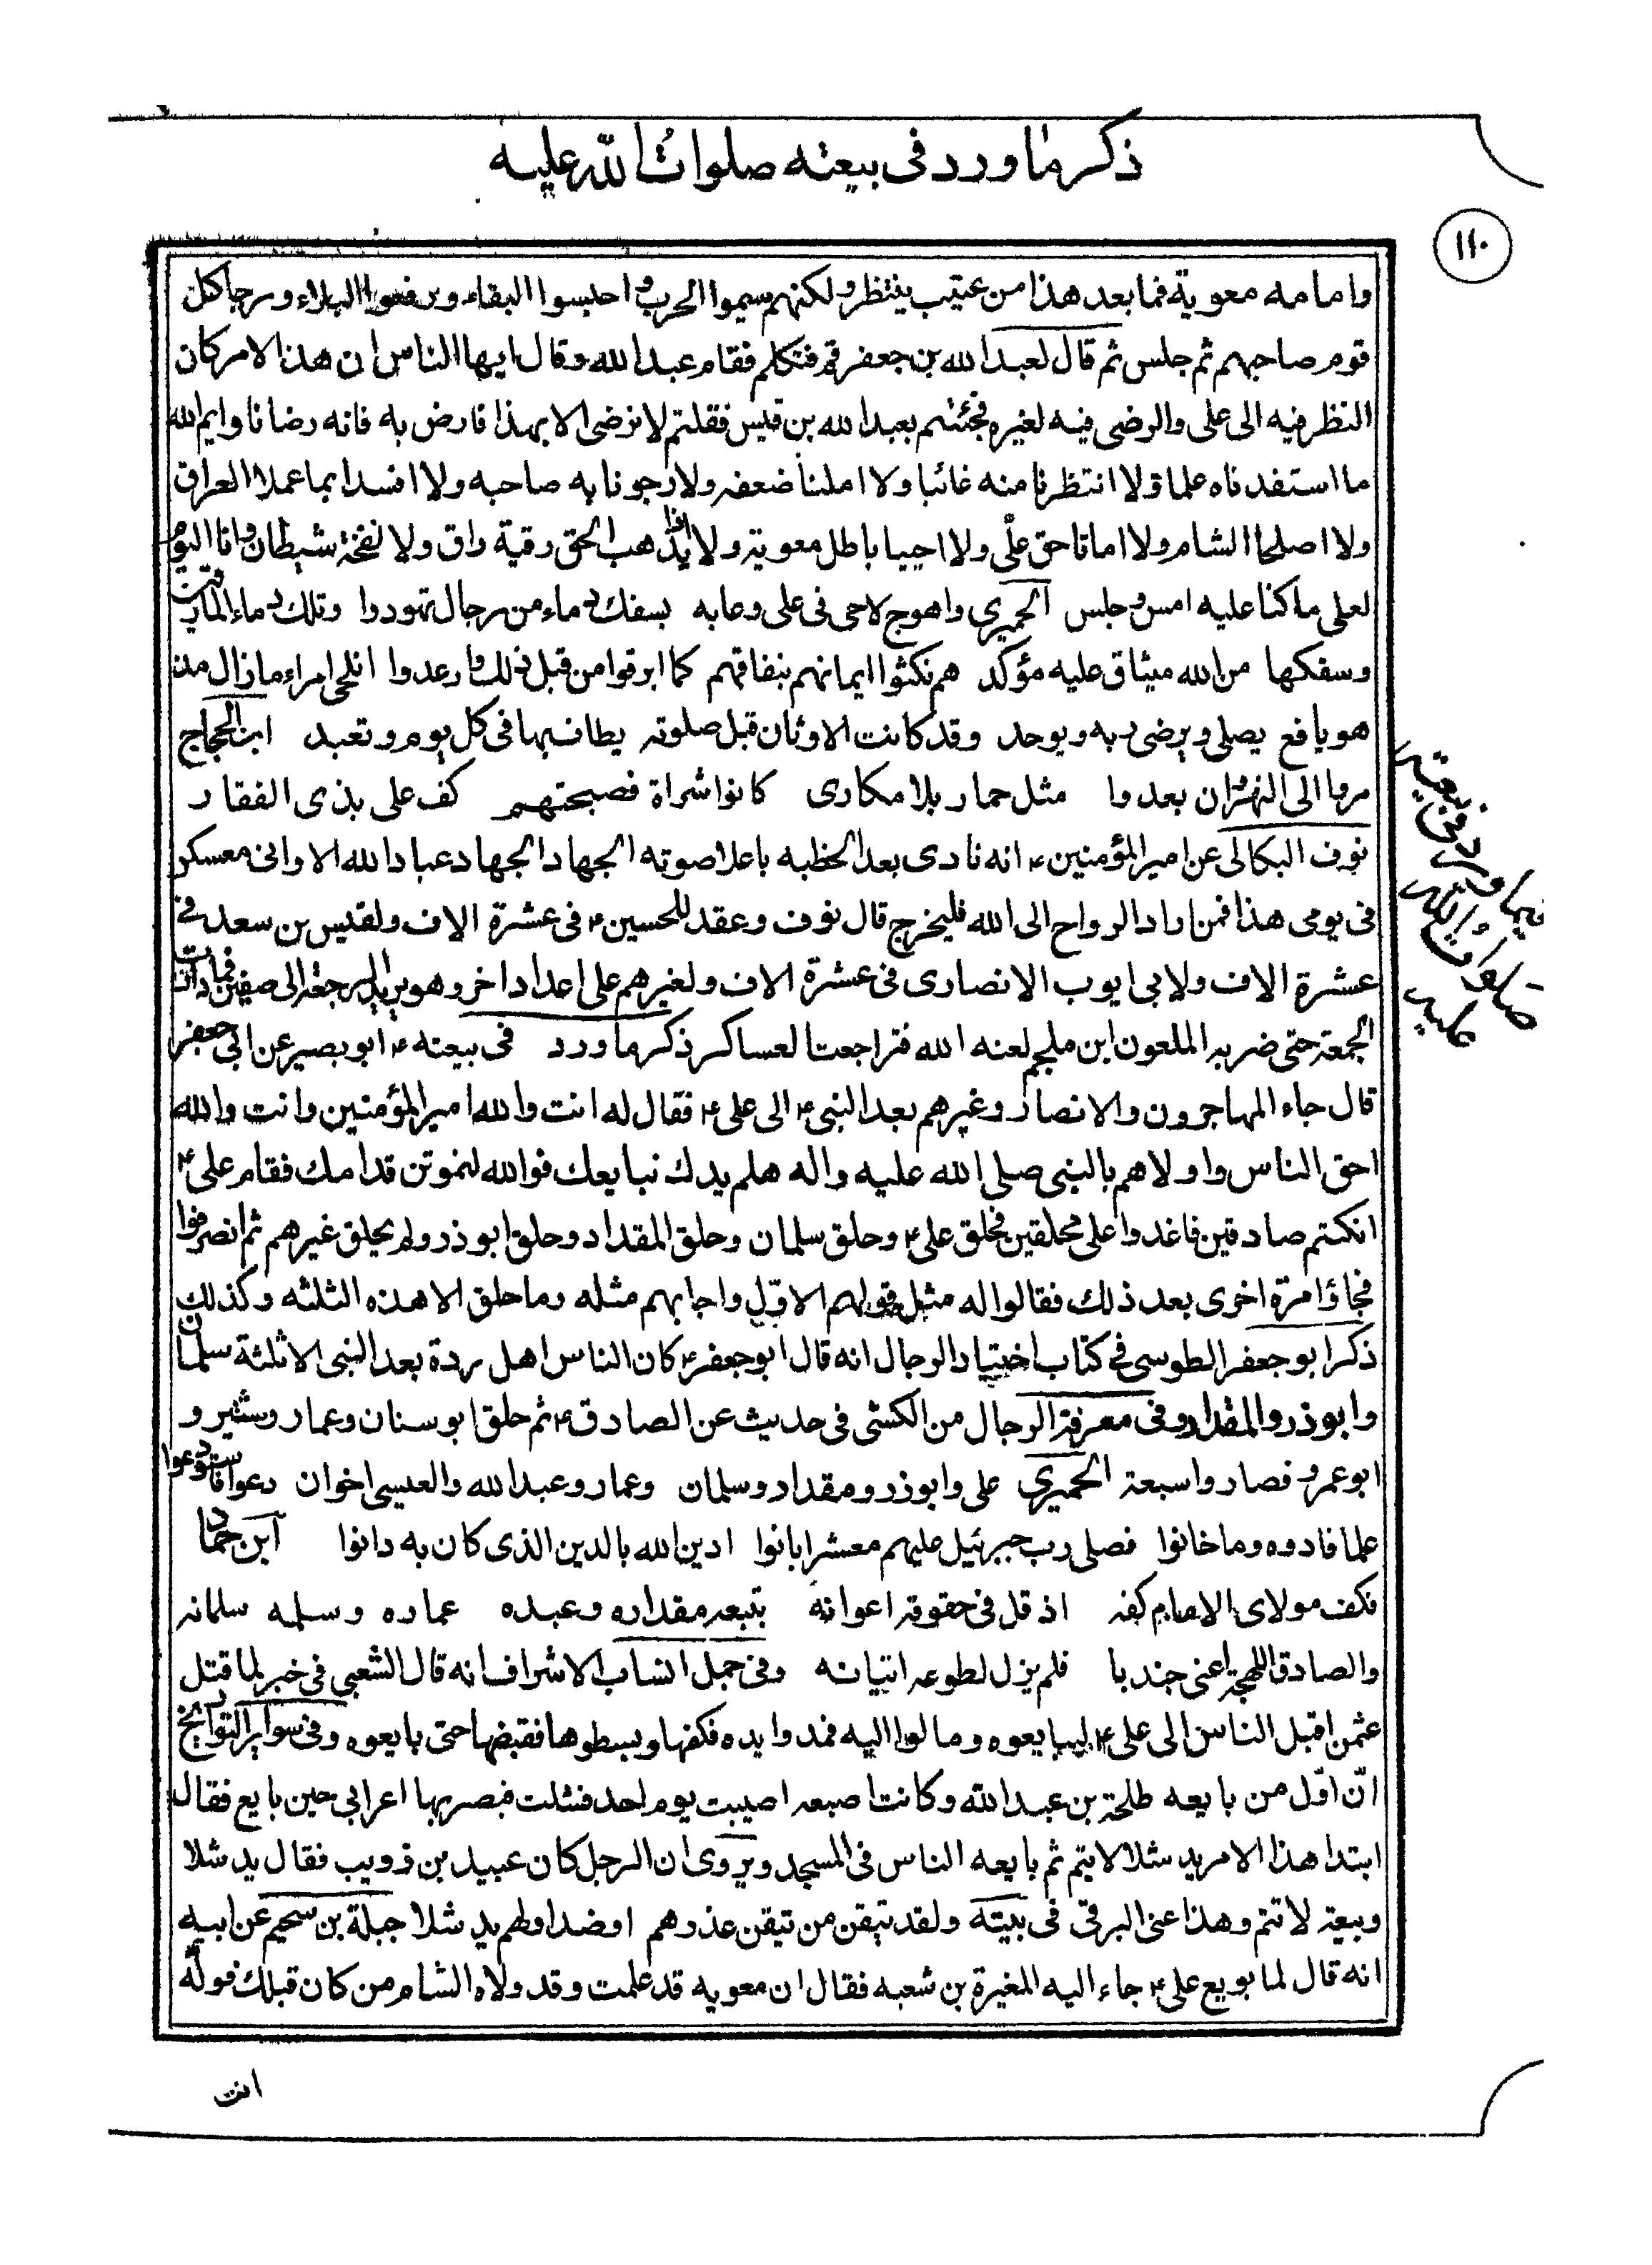 ذكر ما ورد فى بيعته صلوات الله عليه
١١٠
وامامه معوية فما بعد هذا من عتيب ينتظر ولكنهم سيموا الحرب و احبسوا البقاء ورفضوا البلاء ورجا كل
قوم صاحبهم ثم جلس ثم قال لعبد الله بن جعفر قم فتكلم فقام عبد الله وقال ايها الناس ان هذا الامر كان
النظر فيه الى على والرضى فيه لغيره فجئتم بعبد الله بن قيس فقلتم لا نرضى الا بهذا فارض به فانه رضانا وايم الله
ما استفدناه علما ولا انتظرنا منه غائبا ولا املنا ضعفه ولا رجونا به صاحبه ولا افسدا بما عملا العراق
ولا اصلحا الشام ولا اماتا حق علّى ولا احييا باطل معوية ولا يذهب الحق رقية راق ولا نفخة شيطان وانا اليوم
لعلى ما كنا عليه امس وجلس الحميرى واهوج لاحى فى على وعابه بسفك دماء من رجال تهودوا وتلك دماء المارقين
وسفكها من الله ميثاق عليه مؤكد هم نكثوا ايمانهم بنفاقهم كما ابرقوا من قبل ذلك وارعدوا اتلحى امراء ما زال مذ
هو يافع يصلى ويرضى ربه ويوحد وقد كانت الاوثان قبل صلوته يطاف بها فى كل يوم وتعبد ابن الحجاج
مروا الى النهروان بعدوا مثل حمار بلا مكارى كانوا شراة فصبحتهم كف على بذى الفقار
نوف البكالى عن امير المؤمنين ع انه نادى بعد الخطبه باعلا صوته الجهاد الجهاد عباد الله الا وانى معسكر
فى يومى هذا فمن اراد الرواح الى الله فليخرج قال نوف وعقد للحسين ع فى عشرة الاف ولقيس بن سعد فى
عشرة الاف ولابى ايوب الانصارى فى عشرة الاف ولغيرهم على اعداد اخر وهو يريد الرجعة الى صفين فما دارت
الجمعة حتى ضربه الملعون ابن ملجم لعنه الله فتراجعت العساكر ذكر ما ورد فى بيعته ع ابو بصير عن ابى جعفر
قال جاء المهاجرون والانصار وغيرهم بعد النبى ع الى على ع فقال له انت والله امير المؤمنين وانت والله
احق الناس واولاهم بالنبى صلى الله عليه واله هلم يدك نبايعك فوالله لنموتن قدامك فقام على ع
ان كنتم صادقين فاغدوا على محلقين فحلق على ع وحلق سلمان وحلق المقداد وحلق ابو ذر ولم يحلق غيرهم ثم انصرفوا
فجاؤا مرة اخرى بعد ذلك فقالوا له مثل قولهم الاوّل واجابهم مثله وما حلق الا هذه الثلثه وكذلك
ذكر ابو جعفر الطوسى فى كتاب اختيار الرجال انه قال ابو جعفر ع كان الناس اهل ردة بعد النبى الا ثلثة سلمان
وابوذر والمقداد وفى معرفة الرجال من الكشى فى حديث عن الصادق ع ثم حلق ابو سنان وعمار وشتير و
ابو عمرو فصاروا سبعة الحميرى على وابوذر ومقداد وسلمان وعمار وعبد الله والعبسى اخوان دعوا فاستودعوا
علما فادوه وما خانوا فصلى رب جبرئيل عليهم معشرا بانوا ادين الله بالدين الذى كان به دانوا ابن حماد
فكف مولاى الامام كفه اذ قل فى حقوقه اعوانه بتبعه مقداره وعبده عماره وسلمه سلمانه
والصادق اللهجة اعنى جندبا فلم يزل لطوعه اتيانه وفى جمل انساب الاشراف انه قال الشعبى فى خبر لما قتل
عثمن اقبل الناس الى على ع ليبايعوه ومالوا اليه فمدوا يده فكفها وبسطوها فقبضها حتى بايعوه وفى سواير التواريخ
انّ اوّل من بايعه طلحة بن عبد الله وكانت اصبعه اصيبت يوم احد فشلت فبصر بها اعرابى حين بايع فقال
ابتدا هذا الامر يد شلا لا يتم ثم بايعه الناس فى المسجد ويروى ان الرجل كان عبيد بن ذويب فقال يد شلا
وبيعة لا تتم وهذا عنى البرقى فى بيته ولقد تيقن من تيقن عذرهم اوضد اولهم يد شلا جبلة بن سحيم عن ابيه
انه قال لما بويع على ع جاء اليه المغيرة بن شعبه فقال ان معويه قد علمت وقد ولاه الشام من كان قبلك فوله
فيما ورد فى بيعته
صلوات الله
عليه
انت